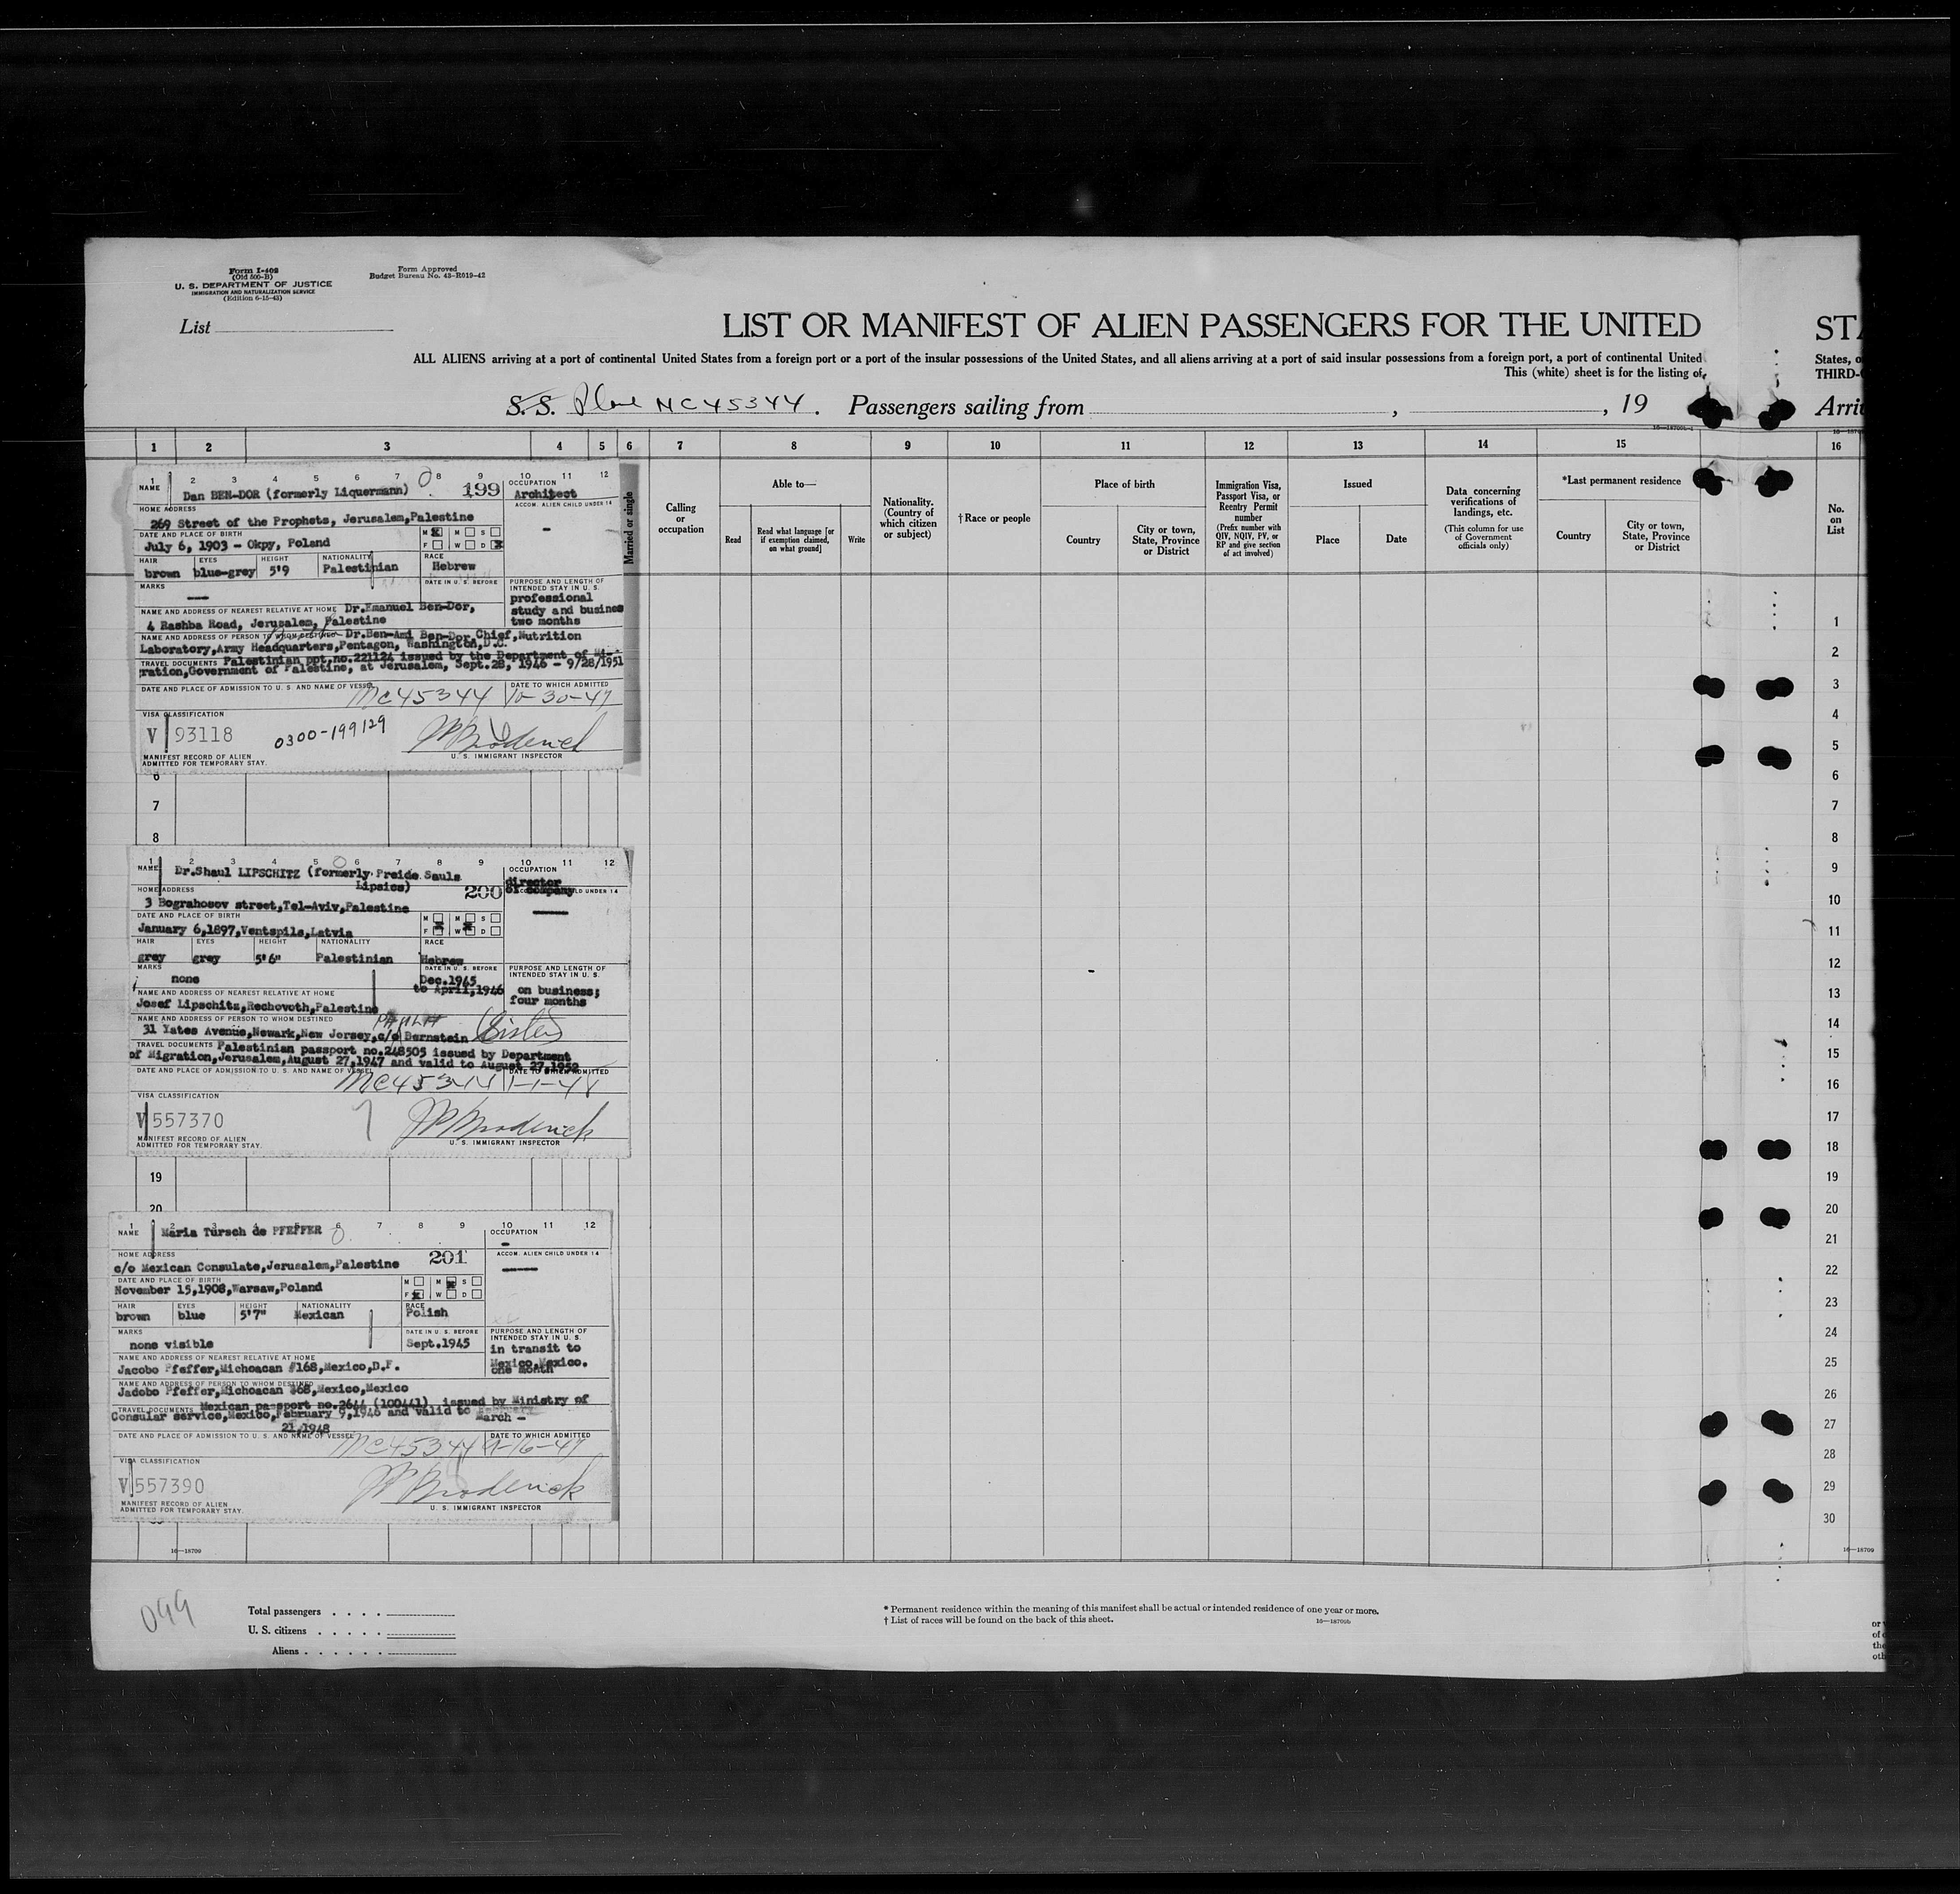 Form I-409
(Old 500-B)
U. S. DEPARTMENT OF JUSTICE
IMMIGRATION AND NATURALIZATION SERVICE
(Edition 6-15-43)
Form Approved
Budget Bureau No. 43-R019-42
List
LIST OR MANIFEST OF ALIEN PASSENGERS FOR THE UNITED
ALL ALIENS arriving at a port of continental United States from a foreign port or a port of the insular possessions of the United States, and all aliens arriving at a port of said insular possessions from a foreign port, a port of continental United
This (white) sheet is for the listing of
S. S. Plane NC45344. Passengers sailing from , , 19
STA
States, o
THIRD-
Arri
1 2 3 4 5 6 7 8 9 10 11 12 13 14 15 16
Married or single
Calling or occupation
Able to—
Read
Read what language [or if exemption claimed, on what ground]
Write
Nationality. (Country of which citizen or subject)
†Race or people
Place of birth
Country
City or town, State, Province or District
Immigration Visa, Passport Visa, or Reentry Permit number
(Prefix number with QIV, NQIV, PV, or RP and give section of act involved)
Issued
Place
Date
Data concerning verifications of landings, etc.
(This column for use of Government officials only)
*Last permanent residence
Country
City or town, State, Province or District
No. on List
1 2 3 4 5 6 7 8 9 10 11 12
NAME Dan BEN-DOR (formerly Liquermann) 199
OCCUPATION Architect
HOME ADDRESS
269 Street of the Prophets, Jerusalem,Palestine
ACCOM. ALIEN CHILD UNDER 14
-
DATE AND PLACE OF BIRTH
July 6, 1903 - Okpy, Poland
M M S
F W D
HAIR brown EYES blue-grey HEIGHT 5'9 NATIONALITY Palestinian RACE Hebrew
MARKS
DATE IN U. S. BEFORE
PURPOSE AND LENGTH OF INTENDED STAY IN U. S.
professional
study and busines
two months
NAME AND ADDRESS OF NEAREST RELATIVE AT HOME Dr.Emanuel Ben-Dor,
4 Rashba Road, Jerusalem, Palestine
NAME AND ADDRESS OF PERSON TO WHOM DESTINED Dr.Ben-Ami Ben-Dor Chief,Nutrition
Laboratory,Army Headquarters,Pentagon, Washington,D.C.
TRAVEL DOCUMENTS Palestinian ppt.no.221124 issued by the Department of Mi-
gration,Government of Palestine, at Jerusalem, Sept.28, 1946 - 9/28/1951
DATE AND PLACE OF ADMISSION TO U. S. AND NAME OF VESSEL NC45344
DATE TO WHICH ADMITTED 10-30-47
VISA CLASSIFICATION
V 93118
0300-199129
MANIFEST RECORD OF ALIEN
ADMITTED FOR TEMPORARY STAY.
U. S. IMMIGRANT INSPECTOR
6
7
8
1 2 3 4 5 6 7 8 9 10 11 12
NAME Dr.Shaul LIPSCHITZ (formerly Preide Sauls
Lipsics) 200
OCCUPATION director
of company
HOME ADDRESS
3 Bograhosov street,Tel-Aviv,Palestine
DATE AND PLACE OF BIRTH
January 6,1897,Ventspils,Latvia
M M S
F W D
HAIR grey EYES grey HEIGHT 5'6" NATIONALITY Palestinian RACE Hebrew
MARKS
none
DATE IN U. S. BEFORE
Dec.1945
to April,1946
PURPOSE AND LENGTH OF INTENDED STAY IN U. S.
on business;
four months
NAME AND ADDRESS OF NEAREST RELATIVE AT HOME
Josef Lipschitz,Rechovoth,Palestine
NAME AND ADDRESS OF PERSON TO WHOM DESTINED
31 Yates Avenue,Newark,New Jersey,c/o Bernstein (Sister)
TRAVEL DOCUMENTS Palestinian passport no.248505 issued by Department
of Migration,Jerusalem,August 27,1947 and valid to August 27,1952
DATE AND PLACE OF ADMISSION TO U. S. AND NAME OF VESSEL NC45344
DATE TO WHICH ADMITTED 1-1-48
VISA CLASSIFICATION
V 557370
MANIFEST RECORD OF ALIEN
ADMITTED FOR TEMPORARY STAY.
JP Broderick
U. S. IMMIGRANT INSPECTOR
19
20
1 2 3 4 5 6 7 8 9 10 11 12
NAME Maria Tursch de PFEFFER
OCCUPATION
-
HOME ADDRESS 201
c/o Mexican Consulate,Jerusalem,Palestine
ACCOM. ALIEN CHILD UNDER 14
DATE AND PLACE OF BIRTH
November 15,1908,Warsaw,Poland
M M S
F W D
HAIR brown EYES blue HEIGHT 5'7" NATIONALITY Mexican RACE Polish
MARKS
none visible
DATE IN U. S. BEFORE
Sept.1945
PURPOSE AND LENGTH OF INTENDED STAY IN U. S.
in transit to
Mexico,Mexico.
one month
NAME AND ADDRESS OF NEAREST RELATIVE AT HOME
Jacobo Pfeffer,Michoacan #168,Mexico,D.F.
NAME AND ADDRESS OF PERSON TO WHOM DESTINED
Jadobo Pfeffer,Michoacan 368,Mexico,Mexico
TRAVEL DOCUMENTS Mexican passport no.2644 (100441) issued by Ministry of
Consular service,Mexico,February 9,1946 and valid to
March -
21,1948
DATE AND PLACE OF ADMISSION TO U. S. AND NAME OF VESSEL NC45344
DATE TO WHICH ADMITTED
VISA CLASSIFICATION
V 557390
MANIFEST RECORD OF ALIEN
ADMITTED FOR TEMPORARY STAY.
JP Broderick
U. S. IMMIGRANT INSPECTOR
1
2
3
4
5
6
7
8
9
10
11
12
13
14
15
16
17
18
19
20
21
22
23
24
25
26
27
28
29
30
16—18709
16—18709
099
Total passengers
U. S. citizens
Aliens
* Permanent residence within the meaning of this manifest shall be actual or intended residence of one year or more.
† List of races will be found on the back of this sheet.
16—18709b